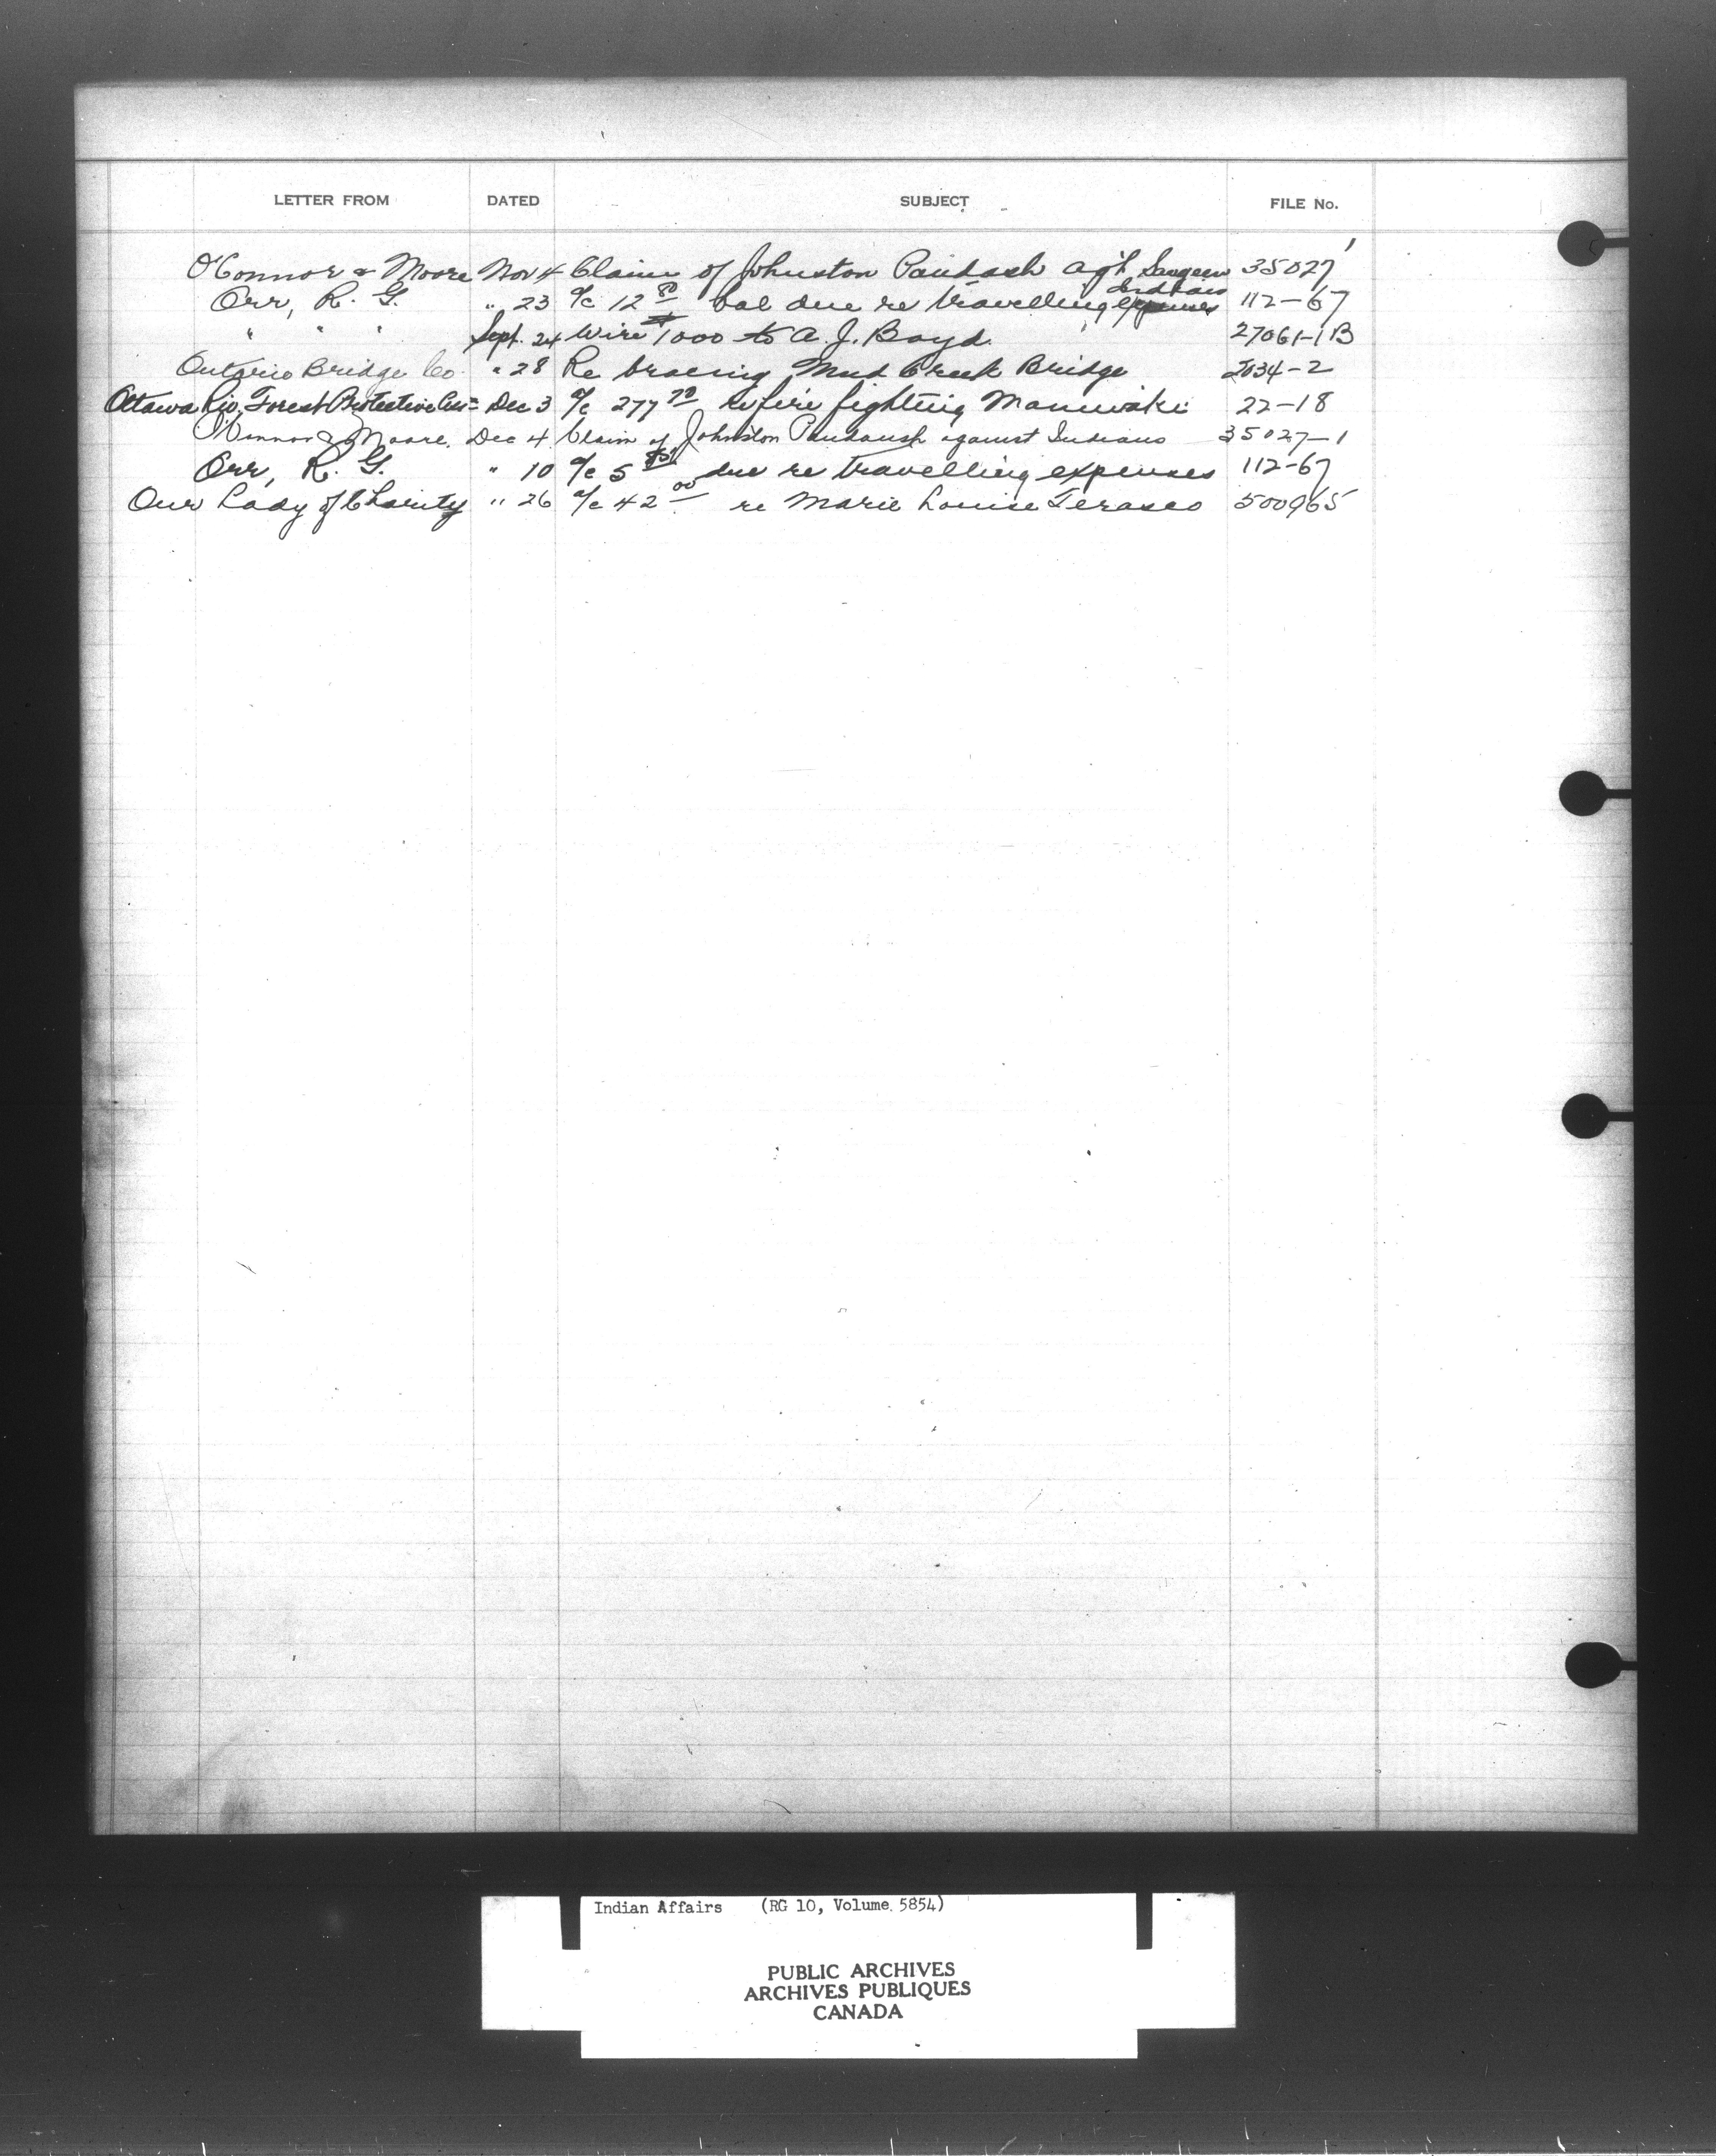 LETTER FROM DATED SUBJECT FILE No.
O'Connor & Moore Nov 4 Claim of Johnston Paudash ag't Saugeen Indians 35027
Orr, R. G. " 23 a/c 12 bal due re travelling expenses 112-67
" " " Sept. 24 Wire $1000 to A. J. Boyd. 27061-1B
Ontario Bridge Co. " 28 Re bracing Mud Creek Bridge 2034-2
Ottawa Riv. Forest Protective Assn Dec 3 a/c 277 re fire fighting Maniwaki 22-18
O'Connor & Moore. Dec 4 Claim of Johnston Paudaush against Indians 35027-1
Orr, R. G. " 10 a/c 5 due re travelling expenses 112-67
Our Lady of Charity " 26 a/c 42 00 re Marie Louise 500965
Indian Affairs (RG 10, Volume 5854)
PUBLIC ARCHIVES
ARCHIVES PUBLIQUES
CANADA